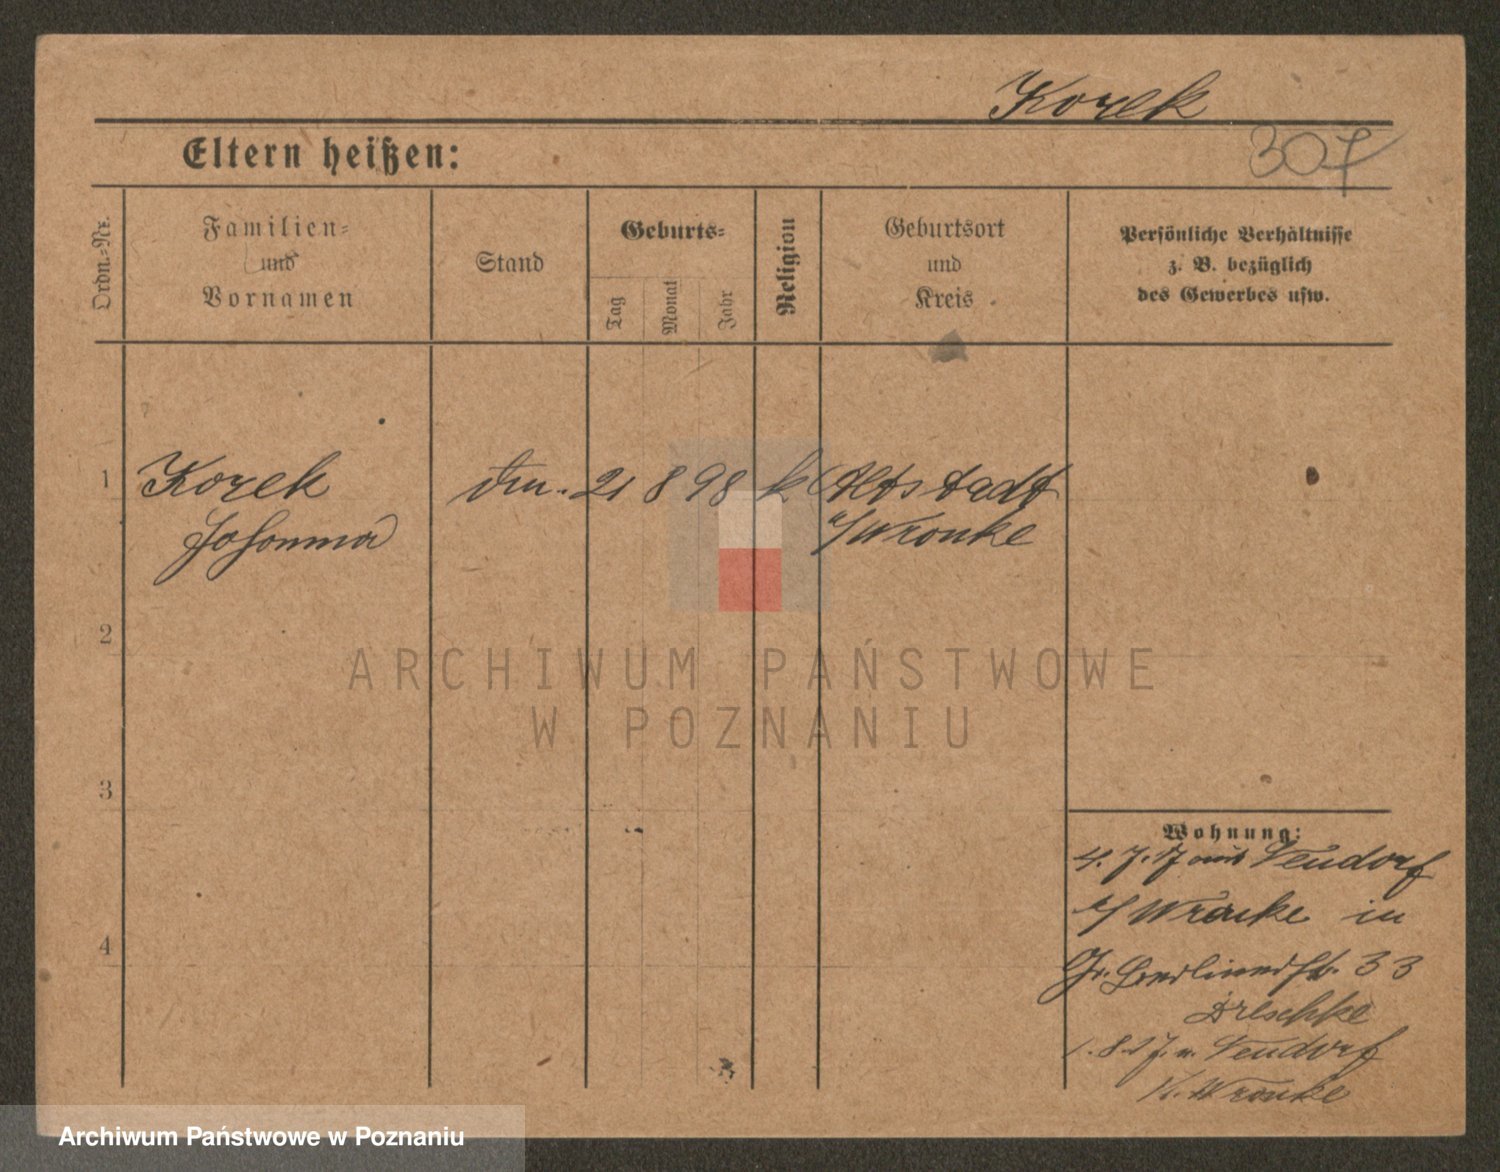 Korek
307
Eltern heißen:
Ordn.-Nr.
Familien-
und
Vornamen
Stand
Geburts-
Tag
Monat
Jahr
Religion
Geburtsort
und
Kreis
Persönliche Verhältnisse
z. B. bezüglich
des Gewerbes usw.
1 Korek 21 8 98 k Altstadt
Johanna b/Wronke
2
ARCHIWUM PAŃSTWOWE
W POZNANIU
3
Wohnung:
4. 7. 17 aus Neudorf
b/Wronke in
4 Gr. Berlinerstr. 33
Dreschke
1. 8. 17. n. Neudorf
b. Wronke
Archiwum Państwowe w Poznaniu